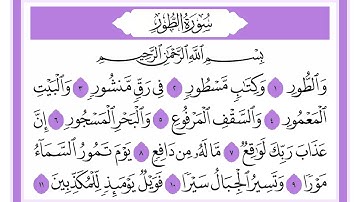 سُورَةُ الطُّورِ
بِسْمِ اللَّهِ الرَّحْمَٰنِ الرَّحِيمِ
وَالطُّورِ ١ وَكِتَابٍ مَّسْطُورٍ ٢ فِي رَقٍّ مَّنشُورٍ ٣ وَالْبَيْتِ
الْمَعْمُورِ ٤ وَالسَّقْفِ الْمَرْفُوعِ ٥ وَالْبَحْرِ الْمَسْجُورِ ٦ إِنَّ
عَذَابَ رَبِّكَ لَوَاقِعٌ ٧ مَّا لَهُ مِن دَافِعٍ ٨ يَوْمَ تَمُورُ السَّمَاءُ
مَوْرًا ٩ وَتَسِيرُ الْجِبَالُ سَيْرًا ١٠ فَوَيْلٌ يَوْمَئِذٍ لِّلْمُكَذِّبِينَ ١١